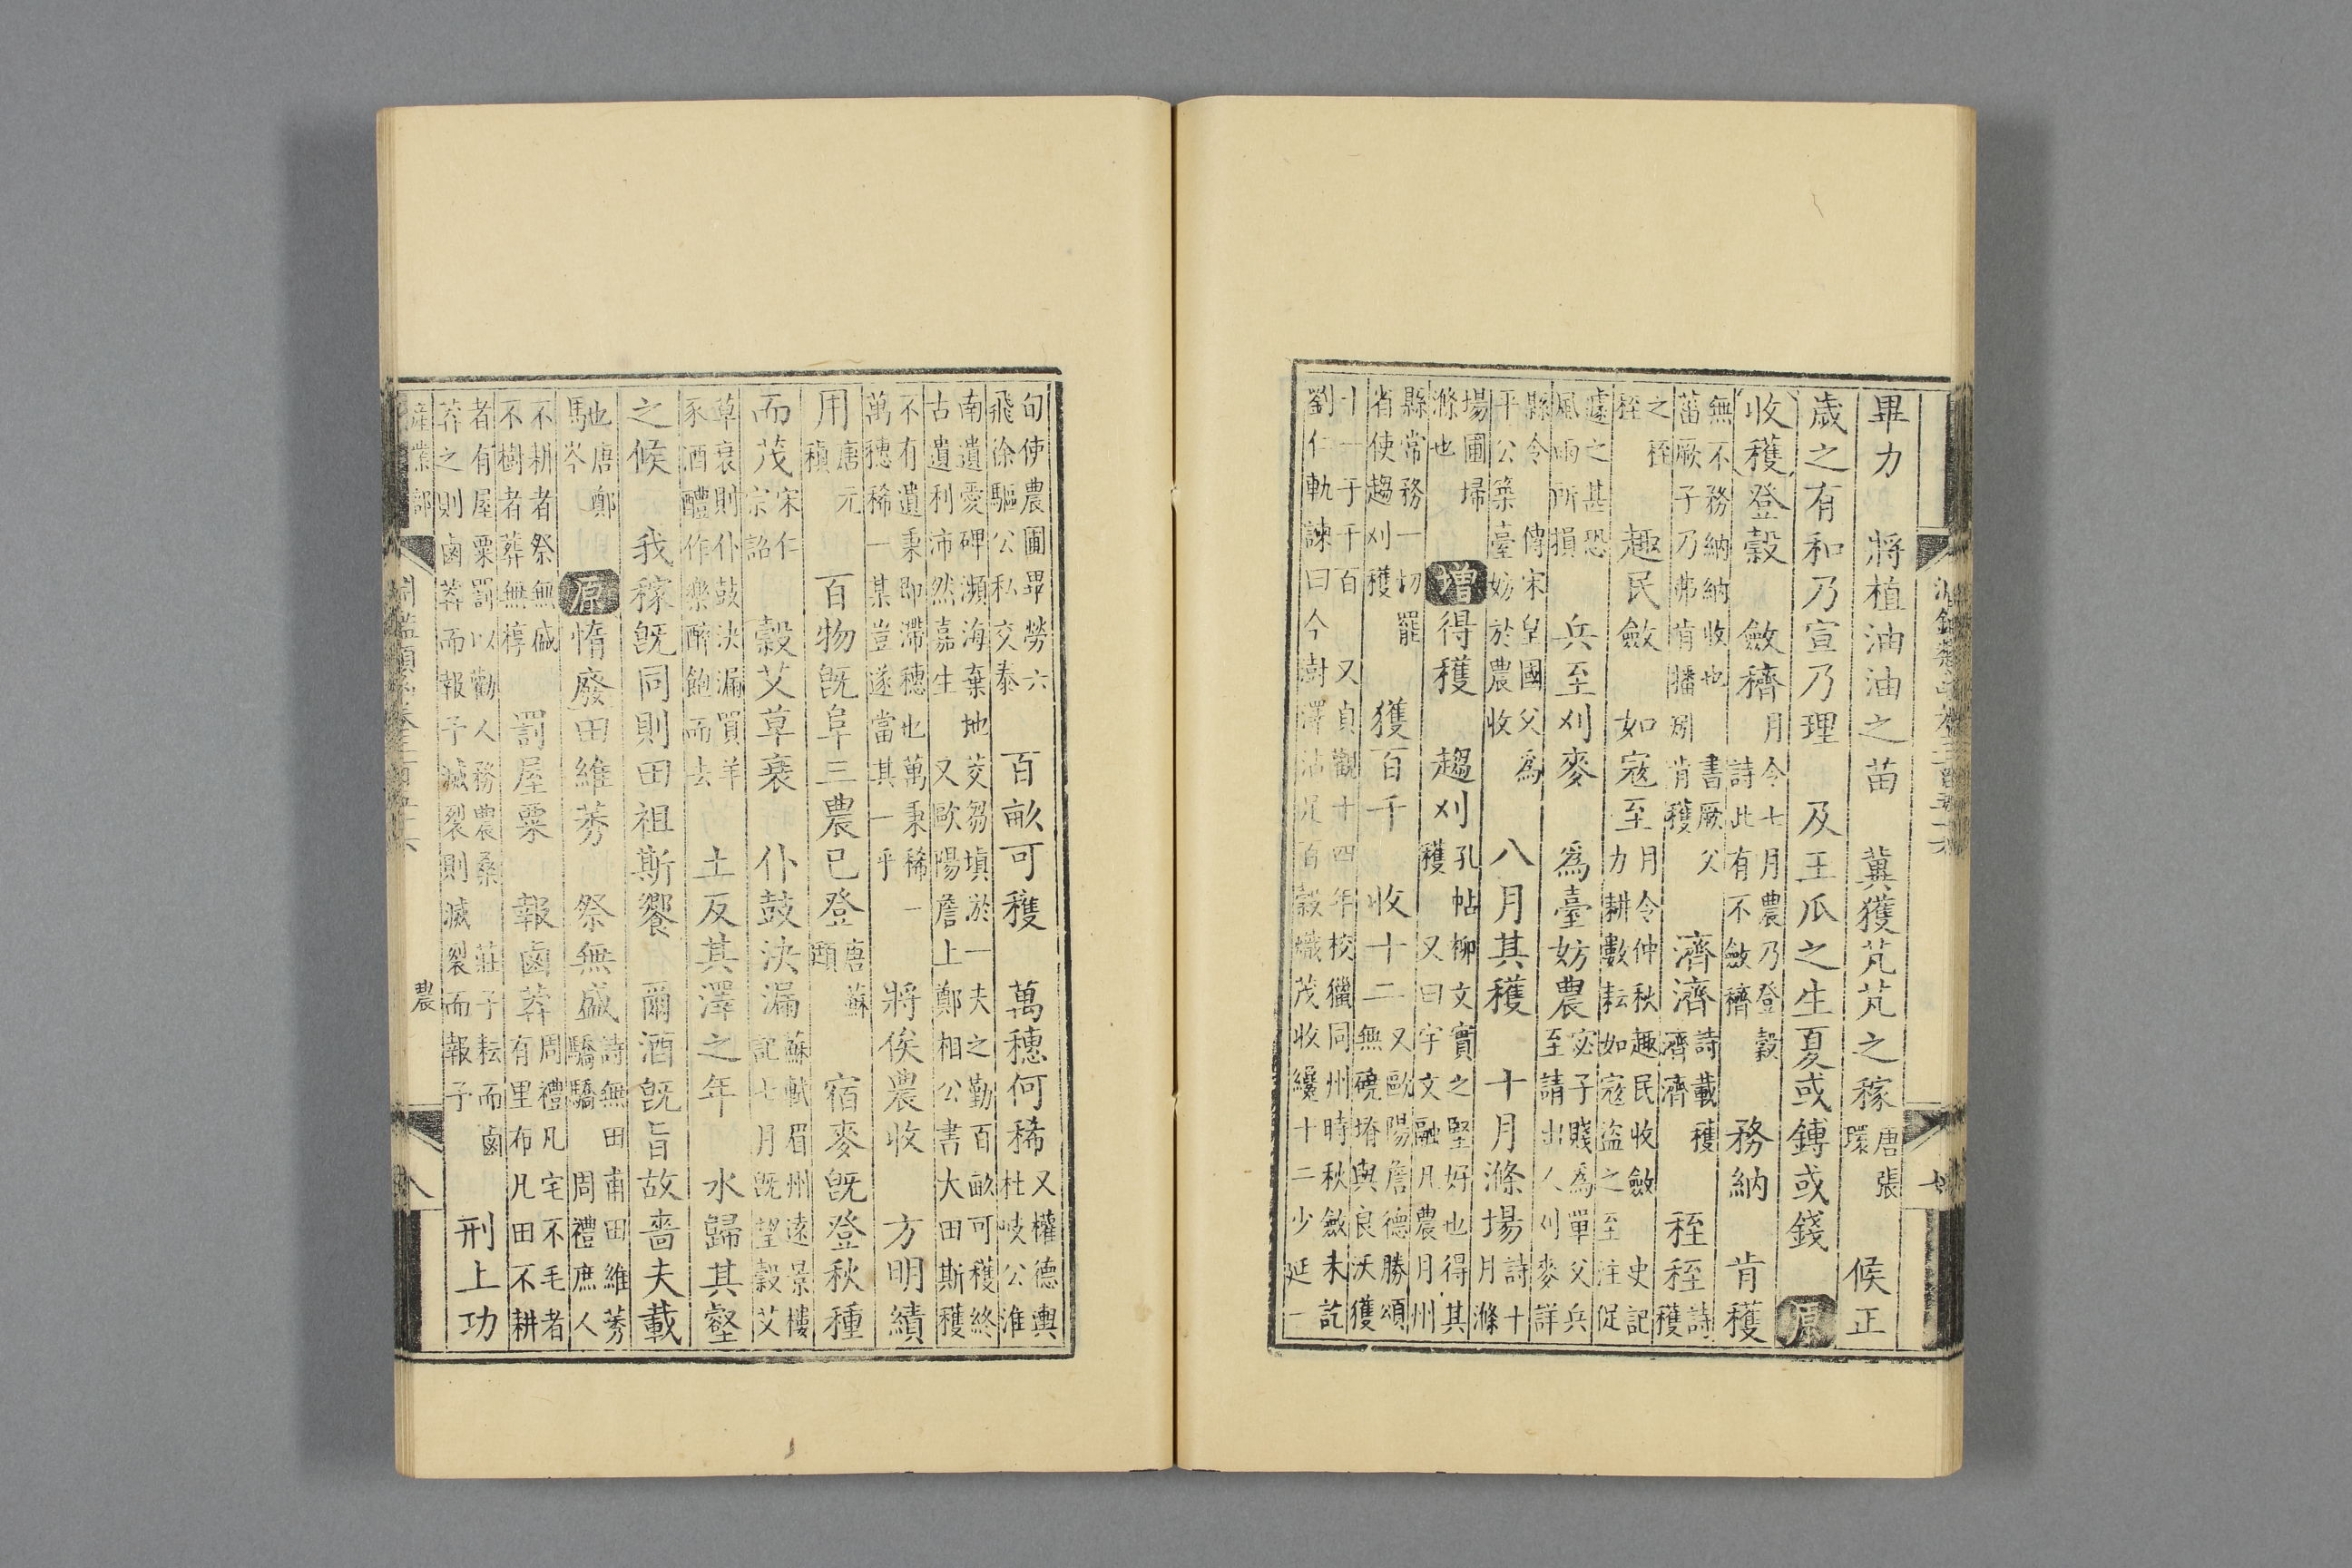 畢力　將植油油之苗　冀獲芃芃之稼唐張環　候正
歲之有和乃宣乃理　及王瓜之生夏或鏄或錢　原
收穫登穀　斂穧月令七月農乃登穀詩此有不斂穧　務納　肯穫
無不務納納收也書厥父菑厥子乃弗肯播矧肯穫　濟濟詩載穫濟濟　挃挃詩穫
之挃挃　趣民斂　如寇至月令仲秋趣民收斂史記力耕數耘如寇盜之至注促
遽之甚恐風雨所損　兵至刈麥　爲臺妨農宓子賤爲單父兵至請出人刈麥詳
縣令　傳宋皇國父爲平公築臺妨於農收　八月其穫　十月滌場詩十月滌
場圃埽滌也　增得穫　趨刈孔帖柳文實之堅好也得其穫又曰宇文融凡農月州
縣常務一切罷省使趨刈穫　獲百千　收十二又歐陽詹德勝頌無磽堉與良沃獲
十一于千百　又貞觀十四年校獵同州時秋斂未訖劉仁軌諫曰今澍澤沾足百穀熾茂收纔十二少延一
句使農圃畢勞六飛徐驅公私交泰　百畝可穫　萬穗何稀又權德輿杜岐公淮
南遺愛碑瀕海棄地茭芻填於一古遺利沛然嘉生又歐陽詹上鄭相公書大田斯穫夫之勤百畝可穫終
不有遺秉即滯穗也萬秉稀一萬穗稀一某豈遂當其一乎　將俟農收　方明績
用唐元稹　百物旣阜三農已登唐蘇頲　宿麥旣登秋種
而茂宋仁宗詔　穀艾草衰　仆鼓決漏蘇軾眉州遠景樓記七月旣望穀艾
草衰則仆鼓決漏買羊豕酒醴作樂醉飽而去　土反其澤之年　水歸其壑
之候　我稼旣同則田祖斯饗　爾酒旣旨故嗇夫載
馳唐鄭岑也　原惰廢田維莠　祭無盛詩無田甫田維莠驕驕周禮庶人
不耕者祭無盛不樹者葬無椁　罰屋粟　報鹵莽周禮凡宅不毛者有里布凡田不耕
者有屋粟罰以勸人務農桑莊子耘而鹵莽之則鹵莽而報予滅裂則滅裂而報予　刑上功
產業部　農　八